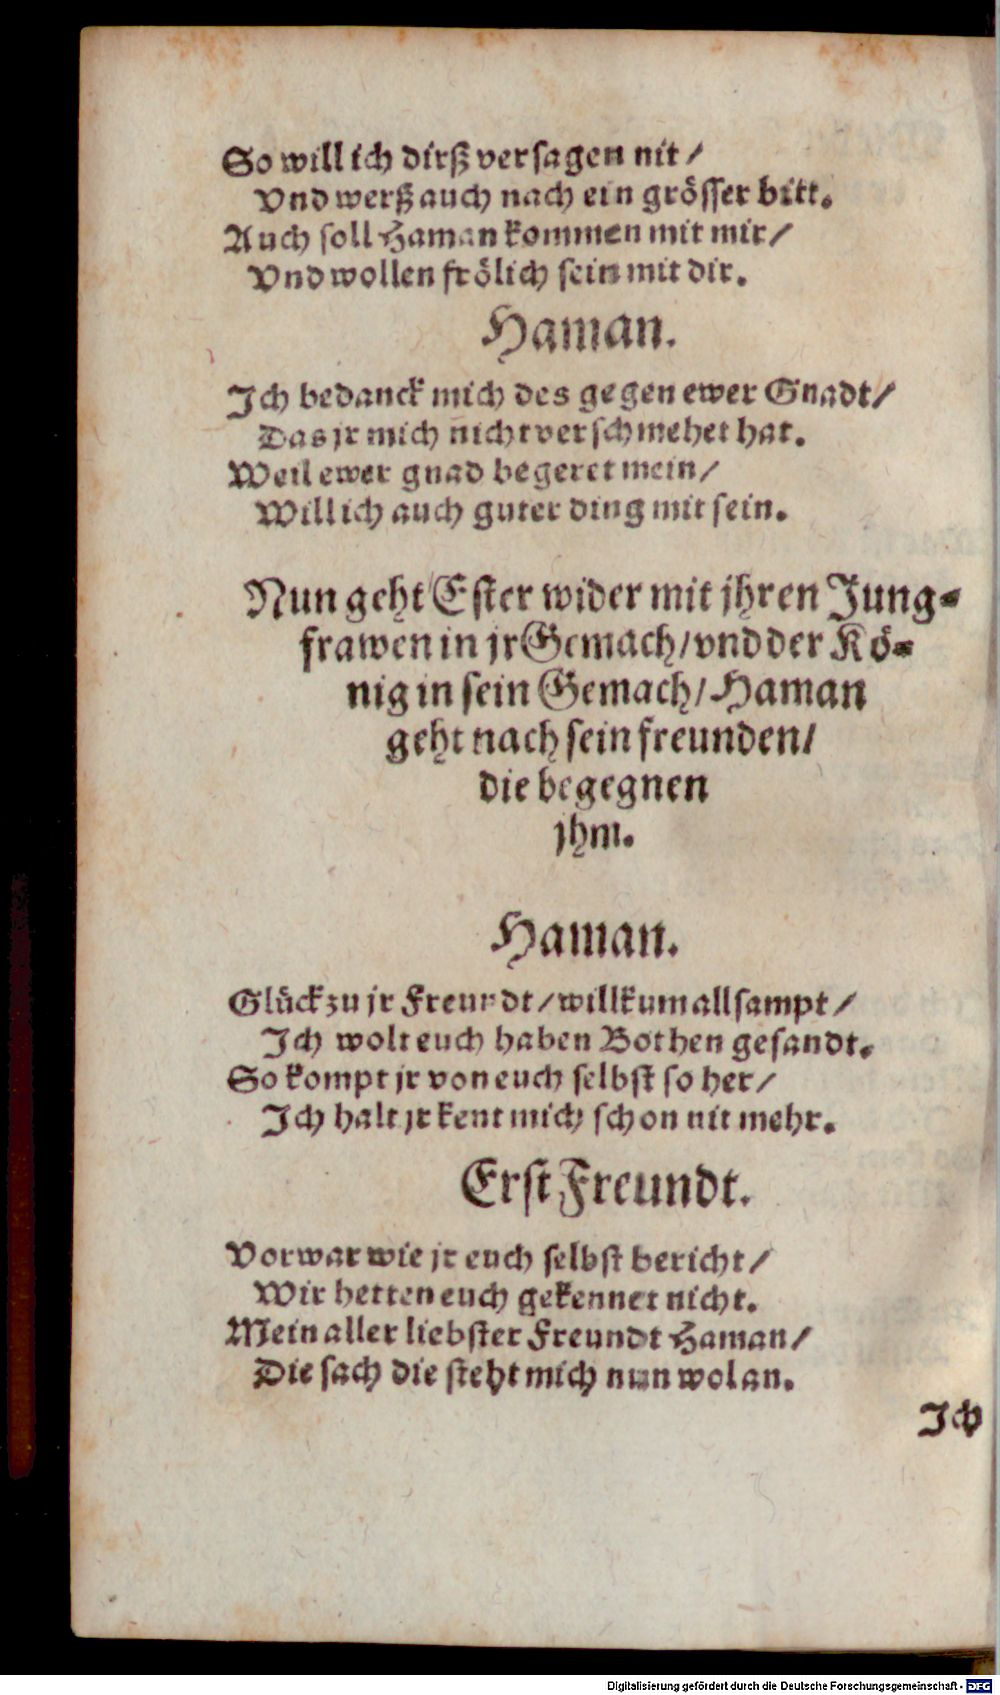 So will ich dirß versagen nit/
Vnd werß auch nach ein grösser bitt.
Auch soll Haman kommen mit mir/
Vnd wollen frölich sein mit dir.
Haman.
Ich bedanck mich des gegen ewer Gnadt/
Das jr mich nicht verschmehet hat.
Weil ewer gnad begeret mein/
Will ich auch guter ding mit sein.
Nun geht Ester wider mit jhren Jung-
frawen in jr Gemach/ vnd der Kö-
nig in sein Gemach/ Haman
geht nach sein freunden/
die begegnen
jhm.
Haman.
Glück zu jr Freundt/ willkum allsampt/
Ich wolt euch haben Bothen gesandt.
So kompt jr von euch selbst so her/
Ich halt jr kent mich schon nit mehr.
Erst Freundt.
Vorwar wie jr euch selbst bericht/
Wir hetten euch gekennet nicht.
Mein aller liebster Freundt Haman/
Die sach die steht mich nun wol an.
Ich
Digitalisierung gefördert durch die Deutsche Forschungsgemeinschaft - DFG